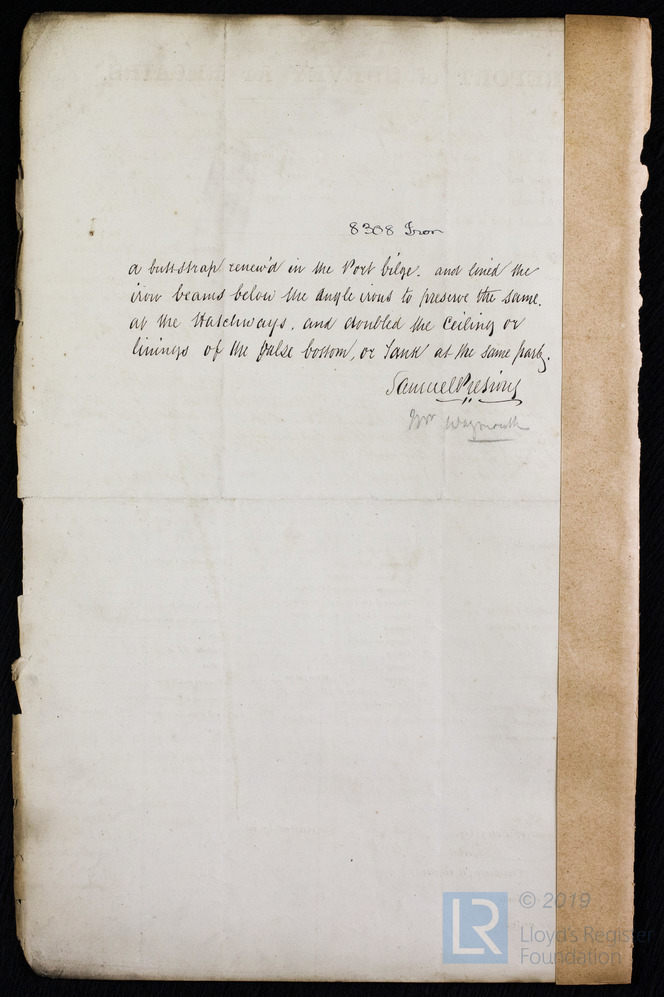 8308 Iron
a buttstrap renew'd in the Port bilge. and lined the
iron beams below the angle irons to preserve the same.
at the Hatchways. and doubled the Ceiling or
linings of the false bottom, or Tank at the same part.
Samuel Presious
Mr Waymouth
REPORT of SURVEY for REPAIRS,
LR
© 2019
Lloyd's Register
Foundation